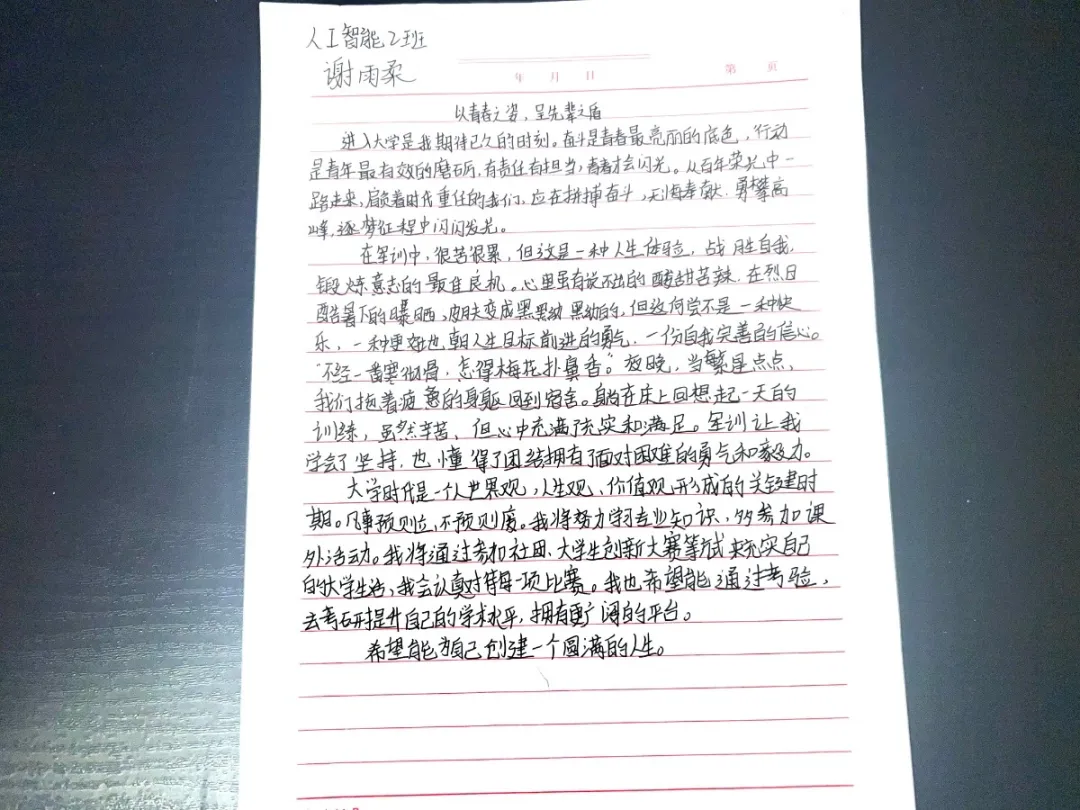 人工智能2班
谢雨柔
年 月 日 第 页
以青春之姿，呈先辈之盾
进入大学是我期待已久的时刻。奋斗是青春最亮丽的底色，行动
是青年最有效的磨砺，有责任有担当，青春才会闪光。从百年荣光中一
路走来，肩负着时代重任的我们，应在拼搏奋斗，无悔奉献，勇攀高
峰，逐梦征程中闪闪发光。
在军训中，很苦很累，但这是一种人生体验，战胜自我，
锻炼意志的最佳良机。心里虽有说不出的酸甜苦辣，在烈日
酷暑下的曝晒，皮肤变成黑黝黝的，但这何尝不是一种快
乐，一种更好地朝人生目标前进的勇气，一份自我完善的信心。
“不经一番寒彻骨，怎得梅花扑鼻香。”夜晚，当繁星点点，
我们拖着疲惫的身躯回到宿舍。躺在床上回想起一天的
训练，虽然辛苦，但心中充满了充实和满足。军训让我
学会了坚持，也懂得了团结拥有了面对困难的勇气和毅力。
大学时代是一个人世界观，人生观、价值观形成的关键时
期。凡事预则立，不预则废。我将努力学习专业知识，多参加课
外活动。我将通过参加社团、大学生创新大赛等试来充实自己
的大学生活，我会认真对待每一项比赛。我也希望能通过考验，
去考研提升自己的学术水平，拥有更广阔的平台。
希望能为自己创建一个圆满的人生。